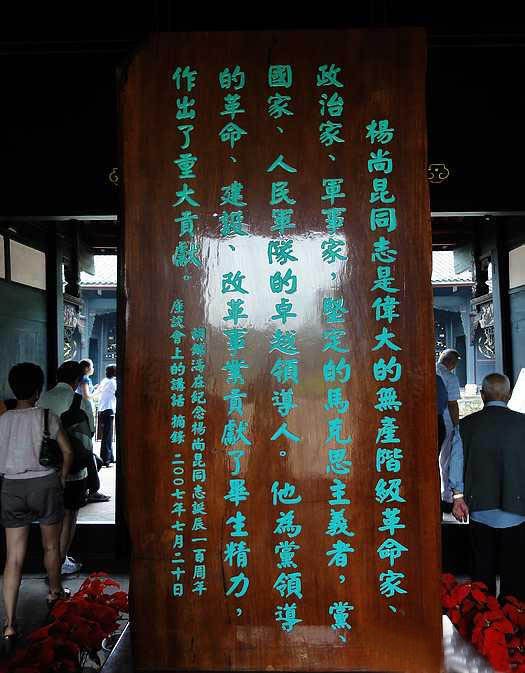 楊尚昆同志是偉大的無產階級革命家、
政治家、軍事家，堅定的馬克思主義者，黨、
國家、人民軍隊的卓越領導人。他為黨領導
的革命、建設、改革事業貢獻了畢生精力，
作出了重大貢獻。
胡錦濤在紀念楊尚昆同志誕辰一百周年
座談會上的講話 摘錄 二〇〇七年七月二十日